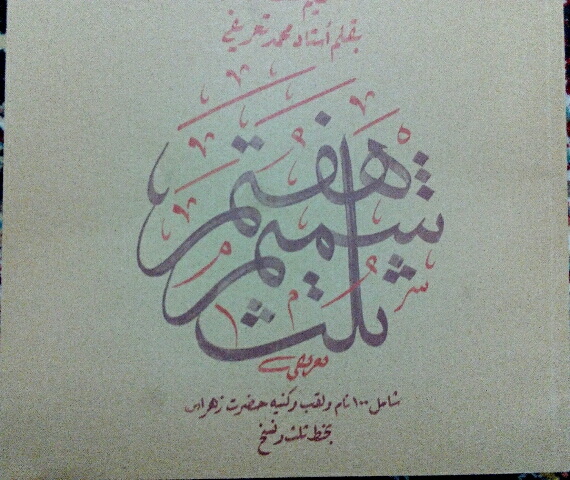 بقلم استاد محمد تعریفی
هفتم
شمیم
ثلث
تعریفی
شامل ۱۰۰ نام و لقب و کنیه حضرت زهرا س
بخط ثلث و نسخ